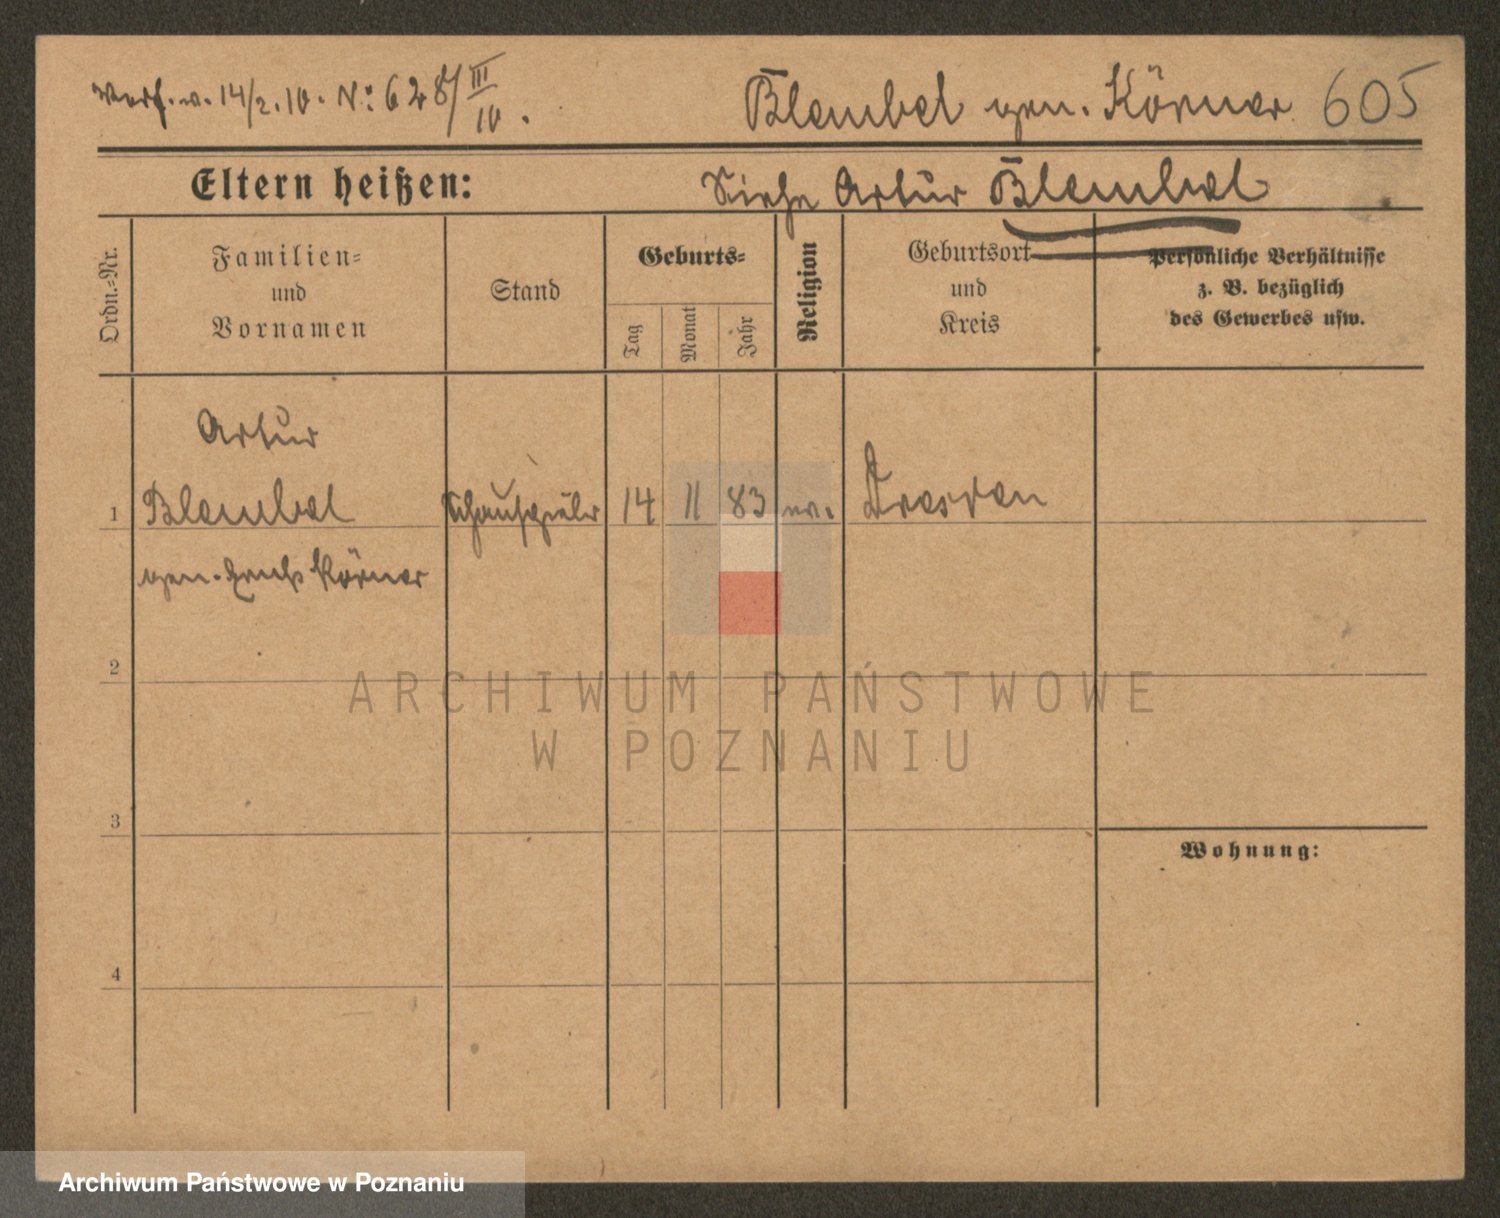 Verf. v. 14/2.10. N: 628/III 10.
Blembel gen. Körner 605
Eltern heißen: Siehe Artur Blembel
Ordn.-Nr.
Familien-
und
Vornamen
Stand
Geburts-
Tag
Monat
Jahr
Religion
Geburtsort
und
Kreis
Persönliche Verhältnisse
z. B. bezüglich
des Gewerbes usw.
Artur
1 Blembel Schauspieler 14 11 83 ev. Dresden
gen. Körner
2
3
4
Wohnung:
ARCHIWUM PAŃSTWOWE
W POZNANIU
Archiwum Państwowe w Poznaniu